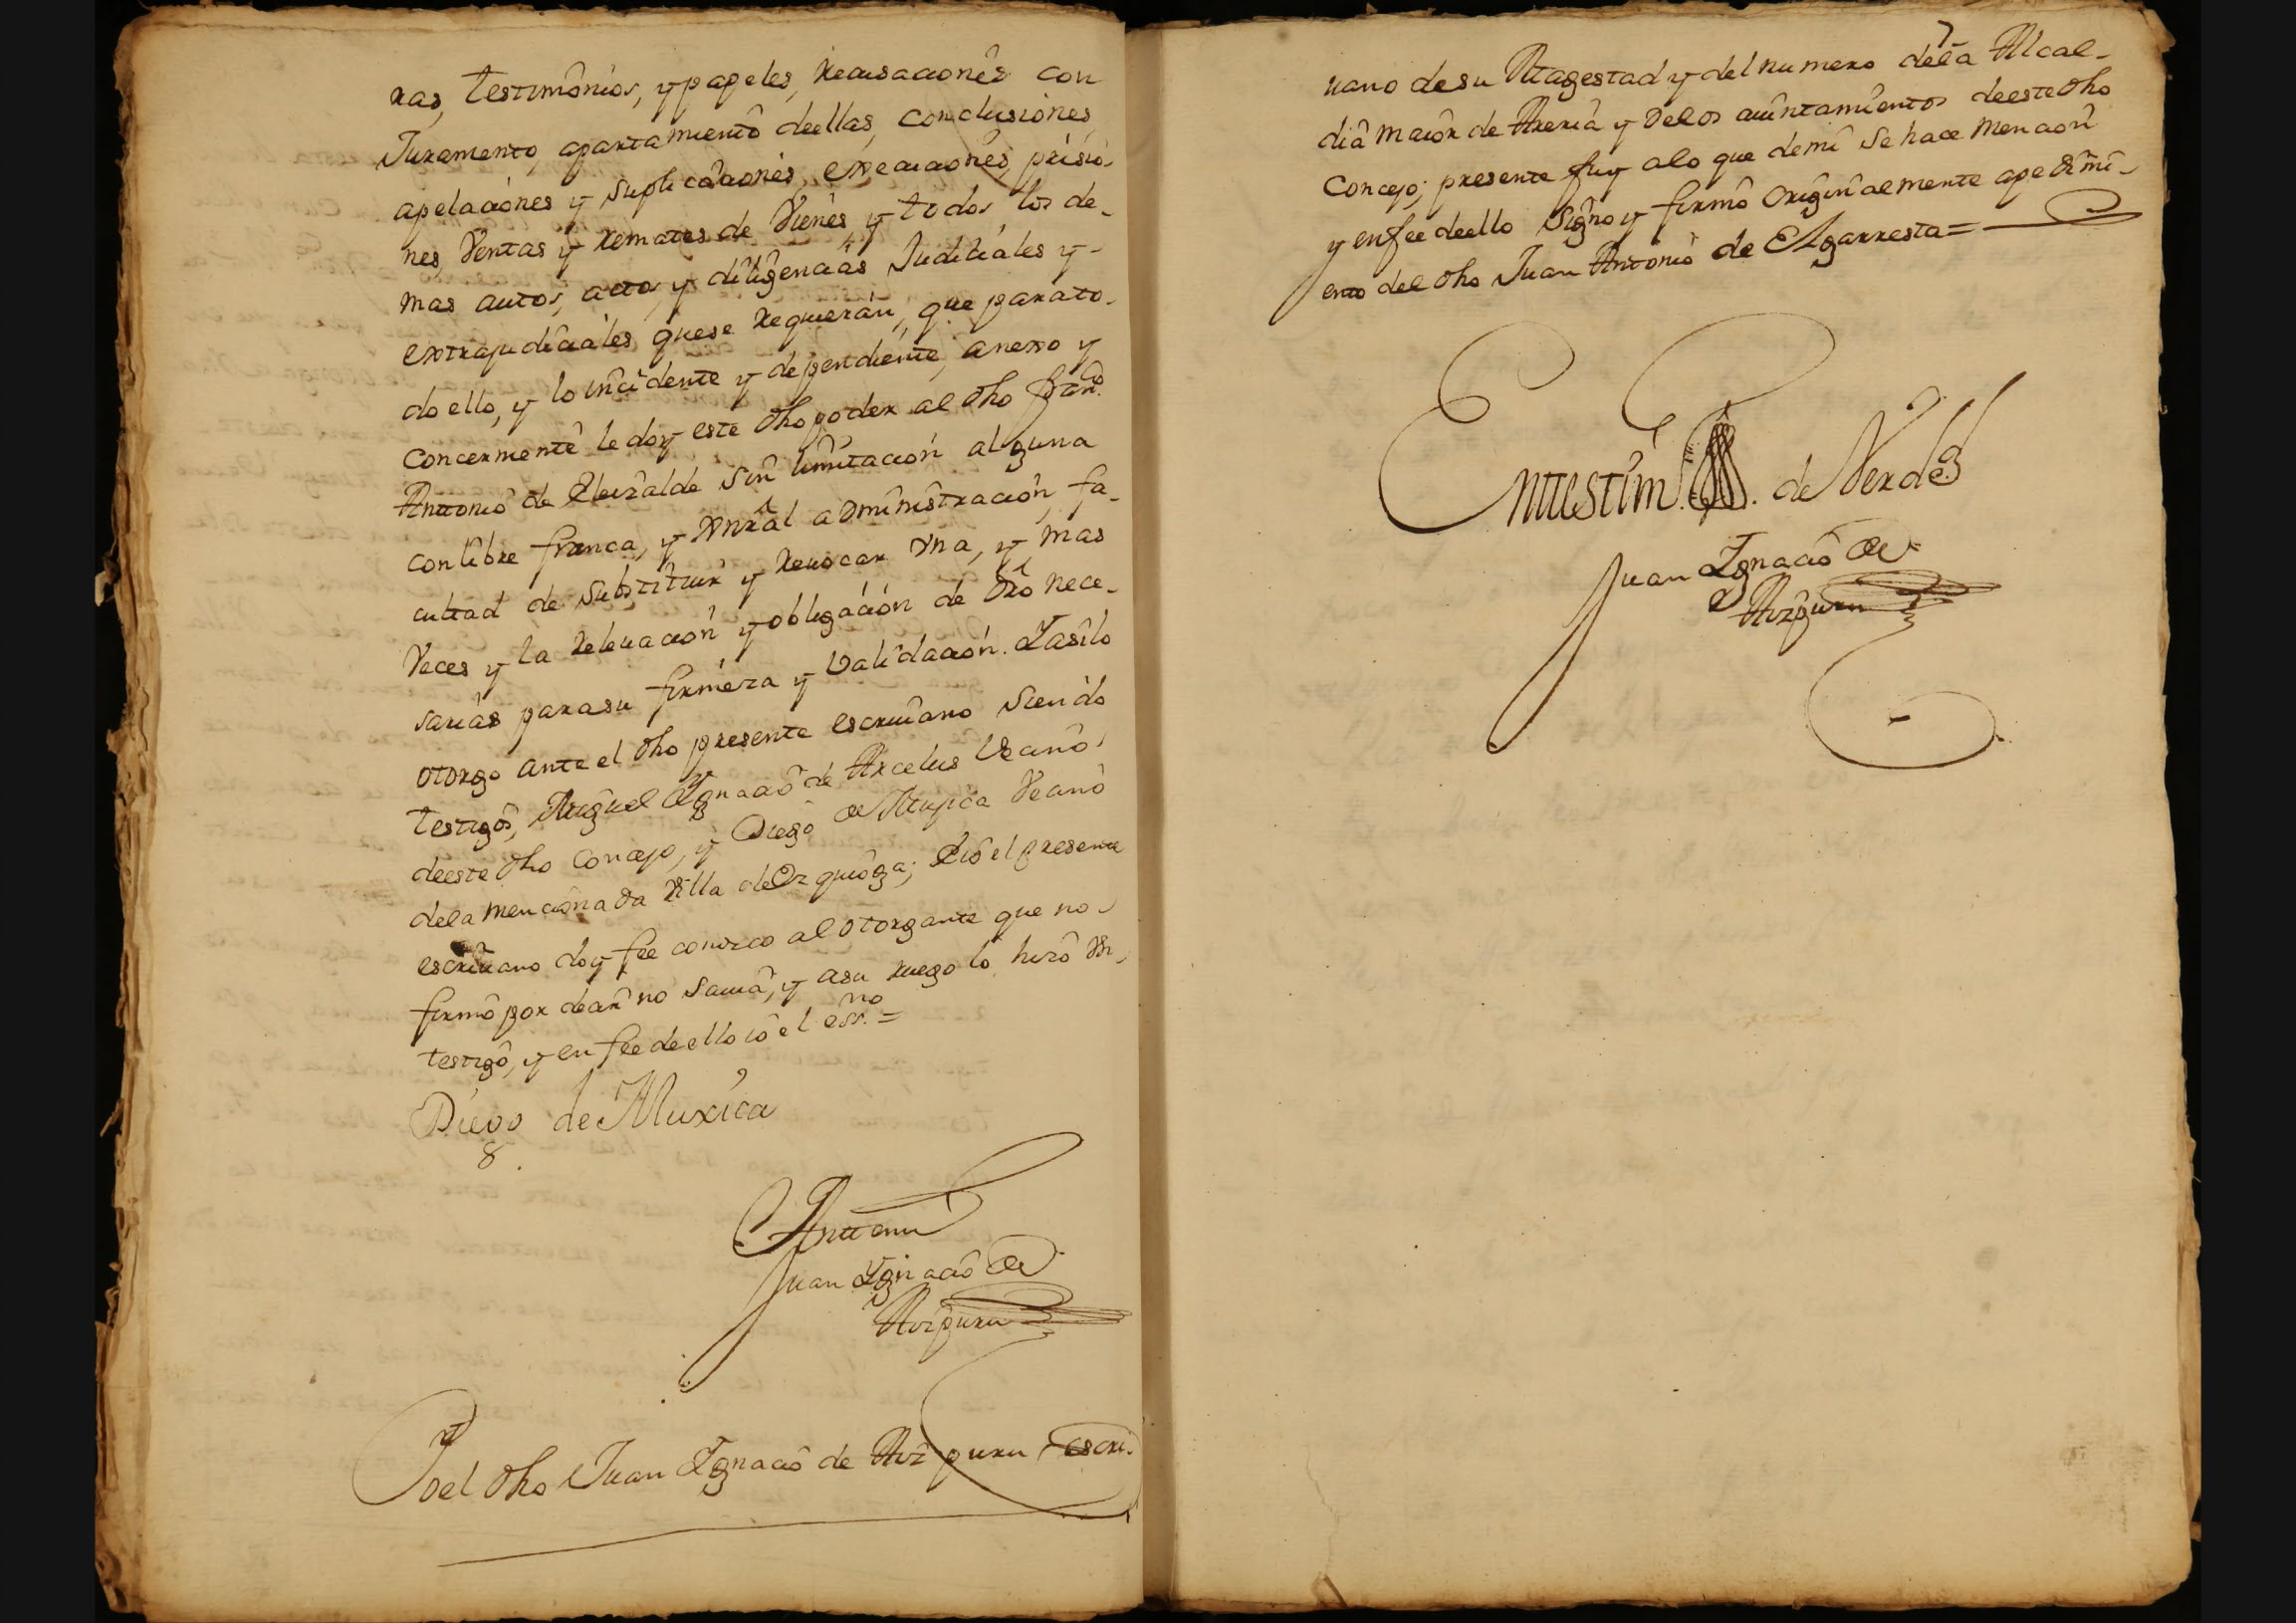 ras, testimonios, y papeles, recusaciones con
Juramento, apartamiento deellas, conclusiones,
apelaciones y suplicaciones, execuciones, prisio-
nes, Ventas y remates de Vienes y todos los de-
mas autos, actos y diligencias Judiciales y-
extrajudiciales quese requieran, que parato-
do ello, y lo incidente y dependiente, anexo y
concerniente le doy este dho poder al dho Franco.
Antonio de Eleizalde sin limitacion alguna
con libre franca, y Xnral administracion, fa-
cultad de substituir y reuocar Vna, y mas
Veces y la releuacion y obligacion de dro nece-
sarias parasu firmeza y Validacion. Yasilo
otorgo ante el dho presente escriuano siendo
testigos, Miguel Ygnacio de Arcelus Vecino
deeste dho Concejo, y Diego de Mujica Vecino
dela mencionada Villa de Vrquioga; Eio el presente
escriuano doy fee conozco al otorgante que no-
firmo por decir no sauia, y asu ruego lo hizo Vn
testigo, y en fee deello io el essno. =
Diego de Muxica
Antemi
Juan Ygnacio de
Aizpuru
Yo el dho Juan Ygnacio de Aizpuru escri-
7
uano desu Magestad y del numero dela Alcal-
dia maior de Areria y delos aiuntamientos deeste dho
Concejo; presente fuy alo que demi se hace mencion
y enfee deello signo y firmo originalmente apedimi-
ento del dho Juan Antonio de Elgarresta=
Entestim. de Verdad
Juan Ygnacio de
Aizpuru